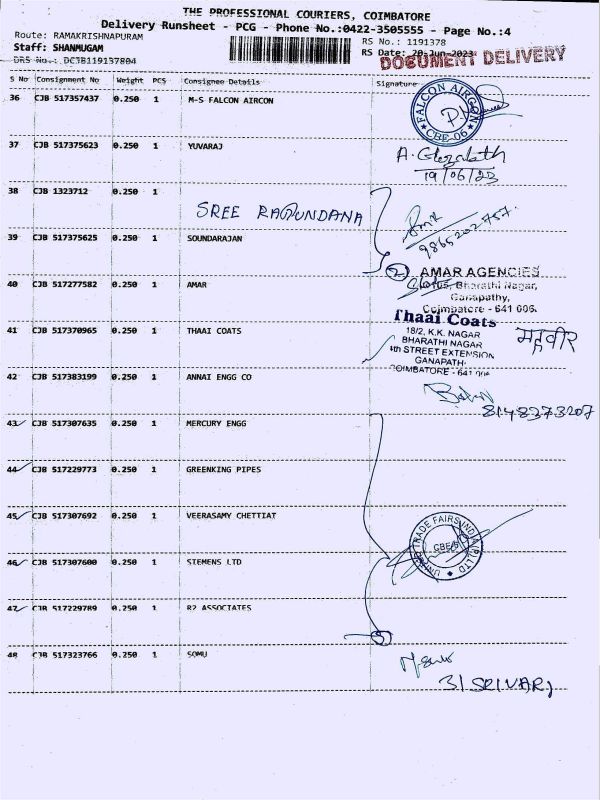 THE PROFESSIONAL COURIERS, COIMBATORE
Delivery Runsheet - PCG - Phone No.:0422-3505555 - Page No.:4
Route: RAMAKRISHNAPURAM RS No.: 1191378
Staff: SHANMUGAM RS Date: 20-Jun-2023
DRS No.: DCJB119137804 DOCUMENT DELIVERY
S No Consignment No Weight PCS Consignee Details Signature
36 CJB 517357437 0.250 1 M-S FALCON AIRCON
FALCON AIRCON CBE-06
37 CJB 517375623 0.250 1 YUVARAJ
19/06/23
38 CJB 1323712 0.250 1
9865202757
39 CJB 517375625 0.250 1 SOUNDARAJAN
40 CJB 517277582 0.250 1 AMAR
2 AMAR AGENCIES
Bharathi Nagar,
Ganapathy,
Coimbatore - 641 006.
41 CJB 517370965 0.250 1 THAAI COATS
Thaai Coats
18/2, K.K. NAGAR
BHARATHI NAGAR
4th STREET EXTENSION
GANAPATH
COIMBATORE - 641
महावीर
42 CJB 517383199 0.250 1 ANNAI ENGG CO
8148373207
43 CJB 517307635 0.250 1 MERCURY ENGG
44 CJB 517229773 0.250 1 GREENKING PIPES
45 CJB 517307692 0.250 1 VEERASAMY CHETTIAT
TRADE FAIRS INDIA (P) LTD
CBE-6
46 CJB 517307600 0.250 1 SIEMENS LTD
47 CJB 517229789 0.250 1 R2 ASSOCIATES
5
48 CJB 517323766 0.250 1 SOMU